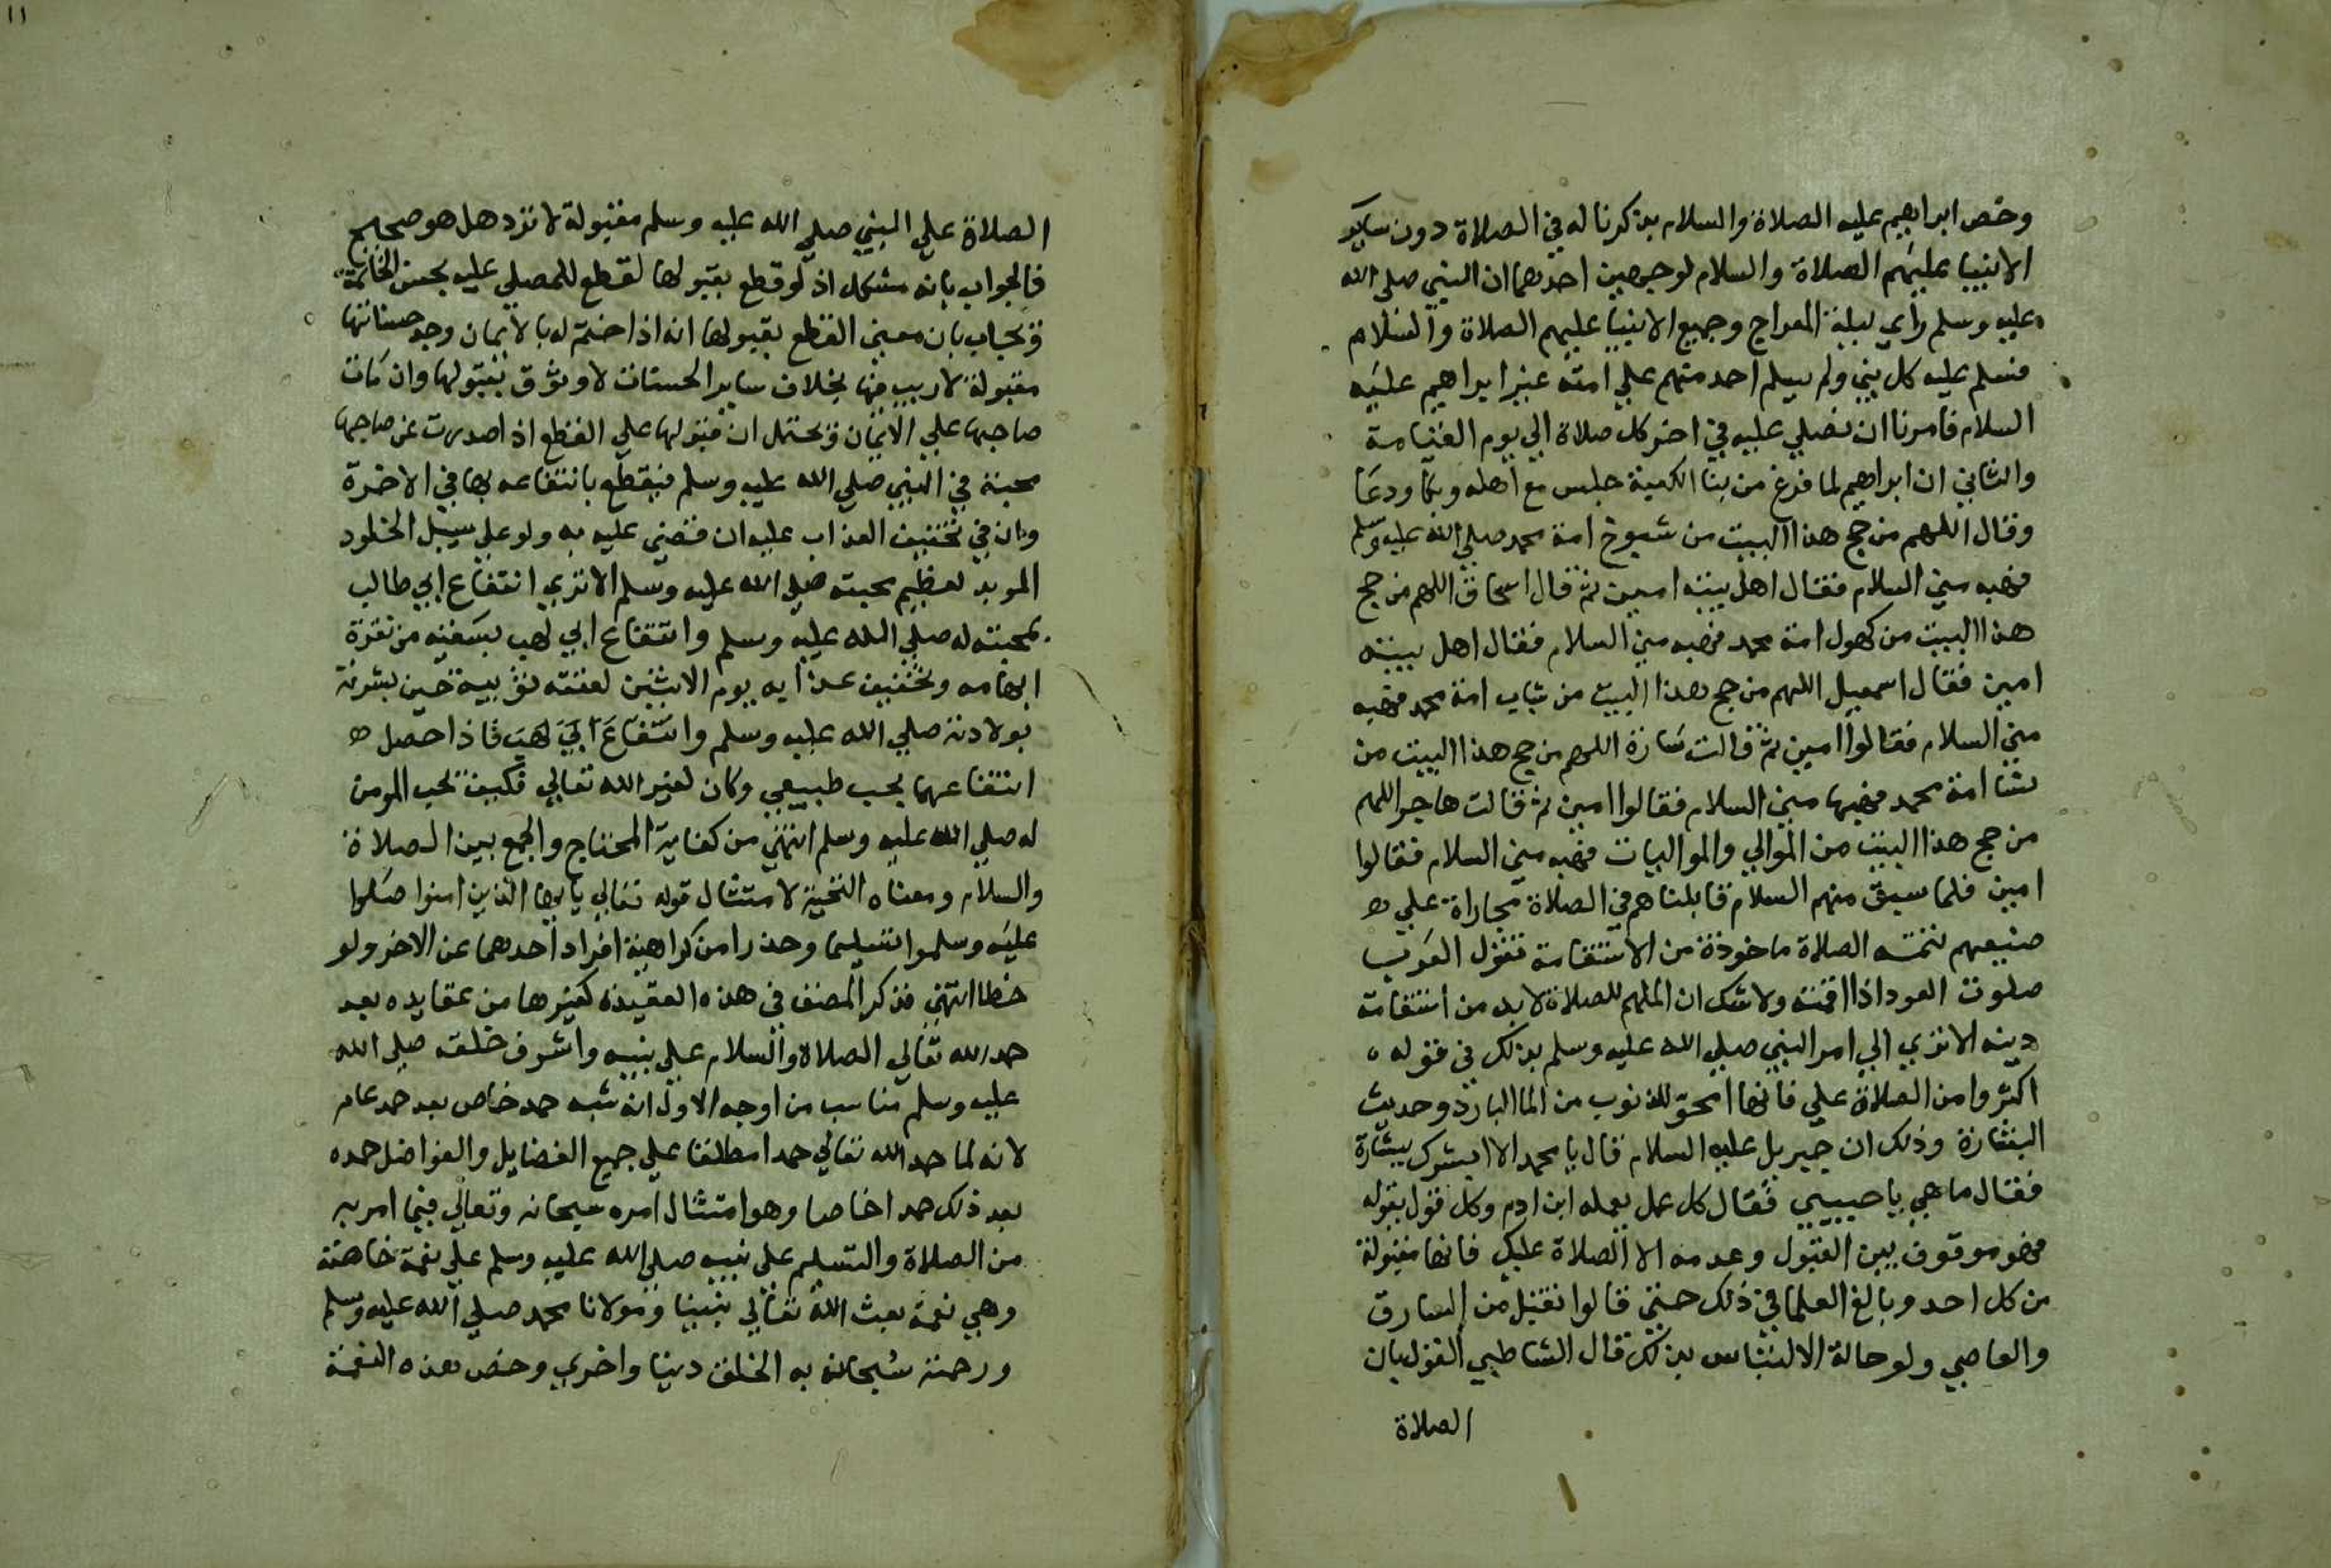 وخص ابراهيم عليه الصلاة والسلام بذكرنا له في الصلاة دون ساير
الانبيا عليهم الصلاة والسلام لوجهين احدهما ان النبي صلى الله
عليه وسلم راي ليلة المعراج وجميع الانبيا عليهم الصلاة والسلام
فسلم عليه كل نبي ولم يسلم احد منهم علي امته غير ابراهيم عليه
السلام فامرنا ان نصلي عليه في اخر كل صلاة الي يوم القيامة
والثاني ان ابراهيم لما فرغ من بنا الكعبة جلس مع اهله وبكا ودعا
وقال اللهم من حج هذا البيت من شيوخ امة محمد صلي الله عليه وسلم
فهبه مني السلام فقال اهل بيته امين ثم قال اسحاق اللهم من حج
هذا البيت من كهول امة محمد فهبه مني السلام فقال اهل بيته
امين فقال اسمعيل اللهم من حج هذا البيت من شباب امة محمد فهبه
مني السلام فقالوا امين ثم قالت سارة اللهم من حج هذا البيت من
نسا امة محمد فهبها مني السلام فقالوا امين ثم قالت هاجر اللهم
من حج هذا البيت من الموالي والمواليات فهبه مني السلام فقالوا
امين فلما سبق منهم السلام قابلناهم في الصلاة مجاراة علي
صنيعهم تتمته الصلاة ماخوذة من الاستقامة تقول العرب
صلوت العود اذا اقمته ولا شك ان الملهم للصلاة لا بد من استقامة
دينه الا تري الي امر النبي صلي الله عليه وسلم بذلك في قوله
اكثروا من الصلاة علي فانها امحق للذنوب من الما البارد وحديث
البشارة وذلك ان جبريل عليه السلام قال يا محمد الا ابشرك ببشارة
فقال ما هي يا حبيبي فقال كل عمل يعمله ابن ادم وكل قول يقوله
فهو موقوف بين القبول وعدمه الا الصلاة عليك فانها مقبولة
من كل احد وبالغ العلما في ذلك حتي قالوا تقبل من السارق
والعاصي ولو حالة الالتباس بذلك قال الشاطبي القول بان
الصلاة
١١
الصلاة علي النبي صلي الله عليه وسلم مقبولة لا ترد هل هو صحيح
فالجواب بانه مشكل اذ لو قطع بقبولها لقطع للمصلي عليه بحسن الخاتمة
ويجاب بان معني القطع بقبولها انه اذا ختم له بالايمان وجد حسناتها
مقبولة لا ريب فيها بخلاف ساير الحسنات لا وثوق بقبولها وان مات
صاحبها علي الايمان ويحتمل ان قبولها علي القطع اذا صدرت عن صاحبها
محبة في النبي صلي الله عليه وسلم فيقطع بانتفاعه بها في الاخرة
وان في تخفيف العذاب عليه ان قضي عليه به ولو علي سبيل الخلود
الموبد لعظيم محبته صلي الله عليه وسلم الا تري انتفاع ابي طالب
بمحبته له صلي الله عليه وسلم وانتفاع ابي لهب بسقيه من نقرة
ابهامه وتخفيف عذابه يوم الاثنين لعتقه ثويبة حين بشرته
بولادته صلي الله عليه وسلم وانتفاع ابي لهب فاذا حصل
انتفاعهما بحب طبيعي وكان لغير الله تعالي فكيف بحب المومن
له صلي الله عليه وسلم انتهي من كفاية المحتاج والجمع بين الصلاة
والسلام ومعناه التحية لامتثال قوله تعالي يا ايها الذين امنوا صلوا
عليه وسلموا تسليما وحذرا من كراهية افراد احدهما عن الاخر ولو
خطا انتهي فذكر المصنف في هذه العقيدة كغيرها من عقايده بعد
حمد الله تعالي الصلاة والسلام علي نبيه واشرف خلقه صلي الله
عليه وسلم مناسب من اوجه الاول انه شبه حمد خاص بعد حمد عام
لانه لما حمد الله تعالي حمدا مطلقا علي جميع الفضايل والفواضل حمده
بعد ذلك حمدا خاصا وهو امتثال امره سبحانه وتعالي فيما امر به
من الصلاة والتسليم علي نبيه صلي الله عليه وسلم علي نعمة خاصة
وهي نعمة بعث الله تعالي نبينا ومولانا محمد صلي الله عليه وسلم
ورحمته سبحانه به الخلق دينا واخري وخص بهذه النعمة